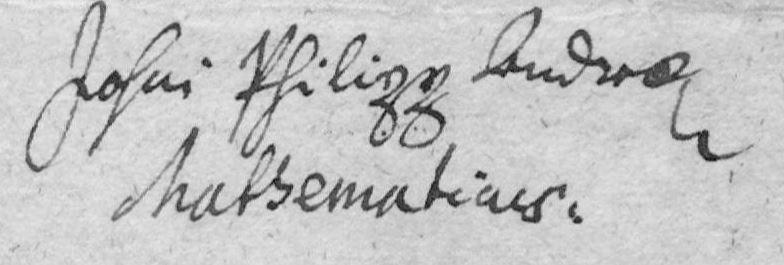 Johan Philipp Andreæ
Mathematicus.